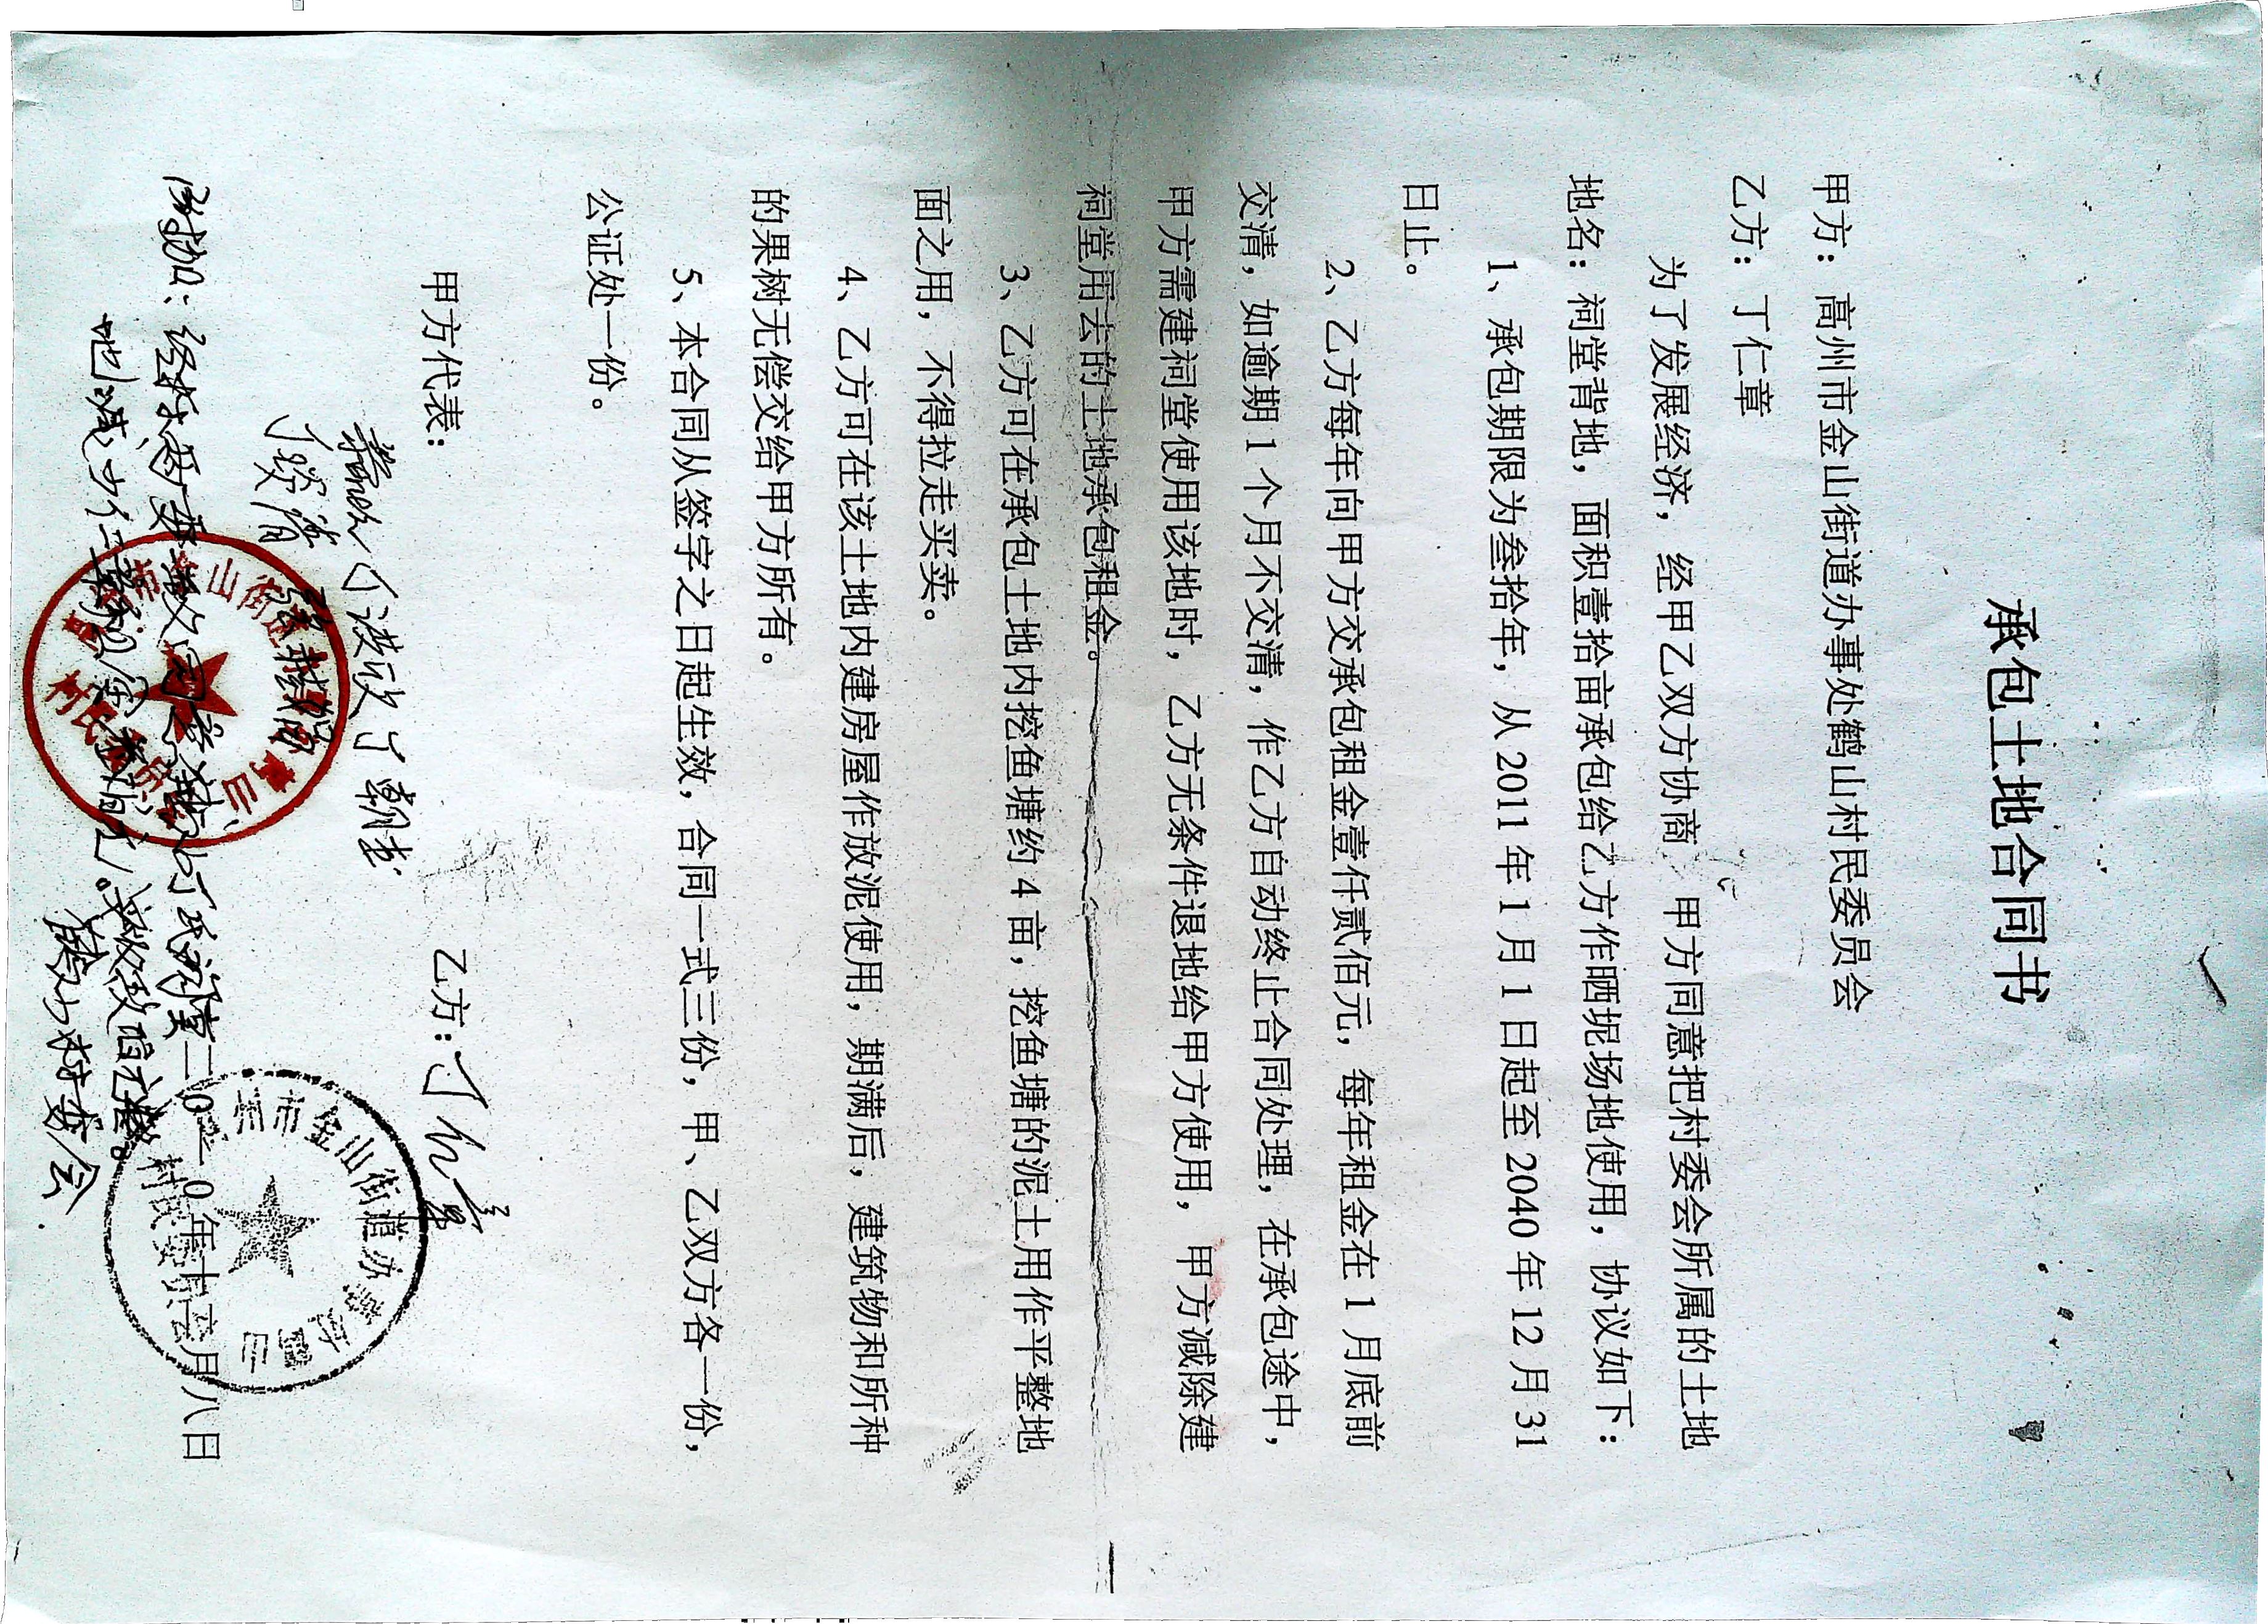 承包土地合同书
甲方：高州市金山街道办事处鹤山村民委员会
乙方：丁仁章
为了发展经济，经甲乙双方协商 甲方同意把村委会所属的土地
地名：祠堂背地，面积壹拾亩承包给乙方作晒坭场地使用，协议如下：
1、承包期限为叁拾年，从2011年1月1日起至2040年12月31
日止。
2、乙方每年向甲方交承包租金壹仟贰佰元，每年租金在1月底前
交清，如逾期1个月不交清，作乙方自动终止合同处理，在承包途中，
甲方需建祠堂使用该地时，乙方无条件退地给甲方使用，甲方减除建
祠堂用去的土地承包租金。
3、乙方可在承包土地内挖鱼塘约4亩，挖鱼塘的泥土用作平整地
面之用，不得拉走买卖。
4、乙方可在该土地内建房屋作放泥使用，期满后，建筑物和所种
的果树无偿交给甲方所有。
5、本合同从签字之日起生效，合同一式三份，甲、乙双方各一份，
公证处一份。
甲方代表： 乙方：丁仁章
二0一0年十二月八日
州市金山街道办事处
村民委员会